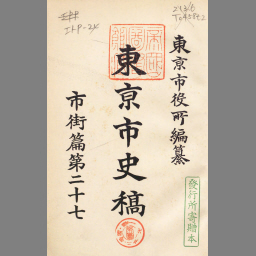 東京市役所編纂
東京市史稿
市街篇第二十七
發行所寄贈本